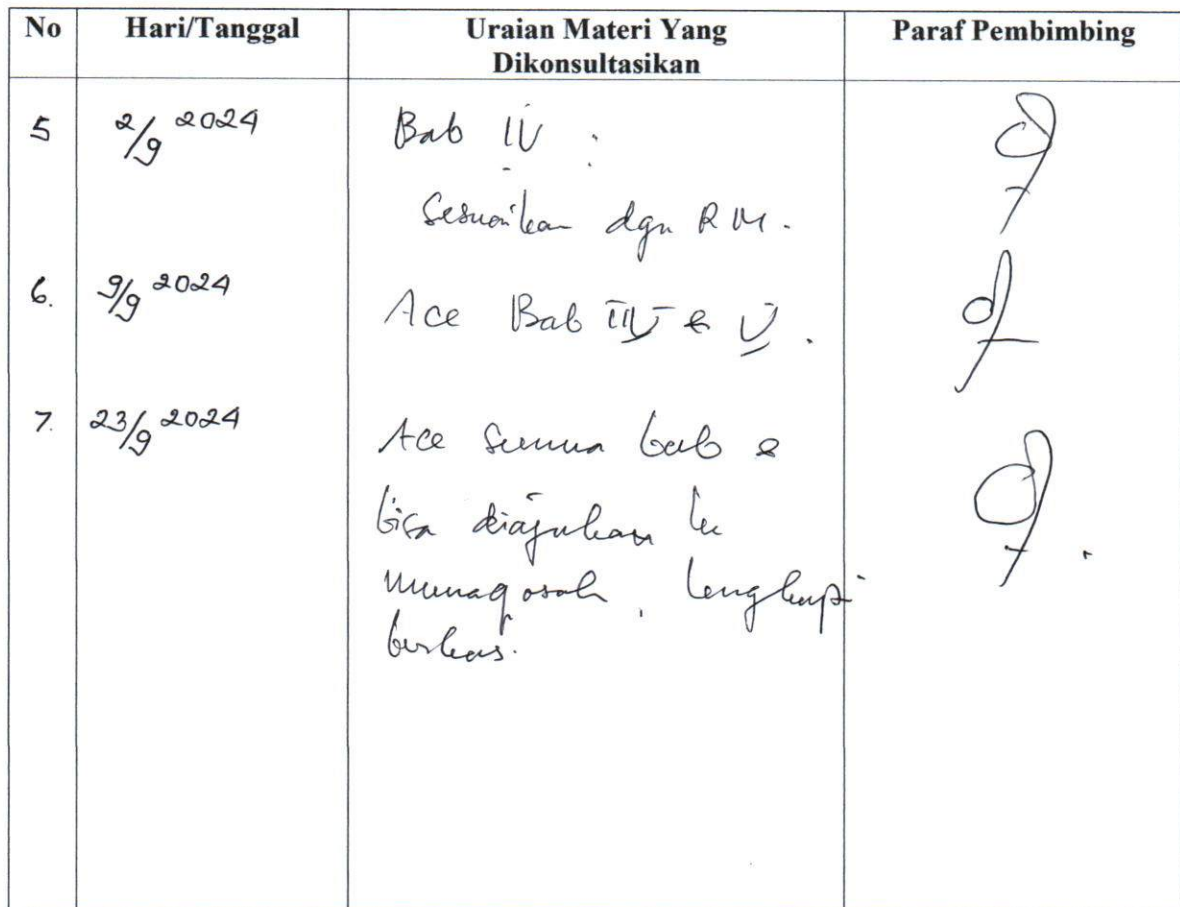 No Hari/Tanggal Uraian Materi Yang Dikonsultasikan Paraf Pembimbing
5 2/9 2024 Bab IV :
Sesuaikan dgn RM.
6. 9/9 2024 Acc Bab IV & V.
7. 23/9 2024 Acc semua bab &
bisa diajukan ke
munaqosah, lengkapi
berkas.